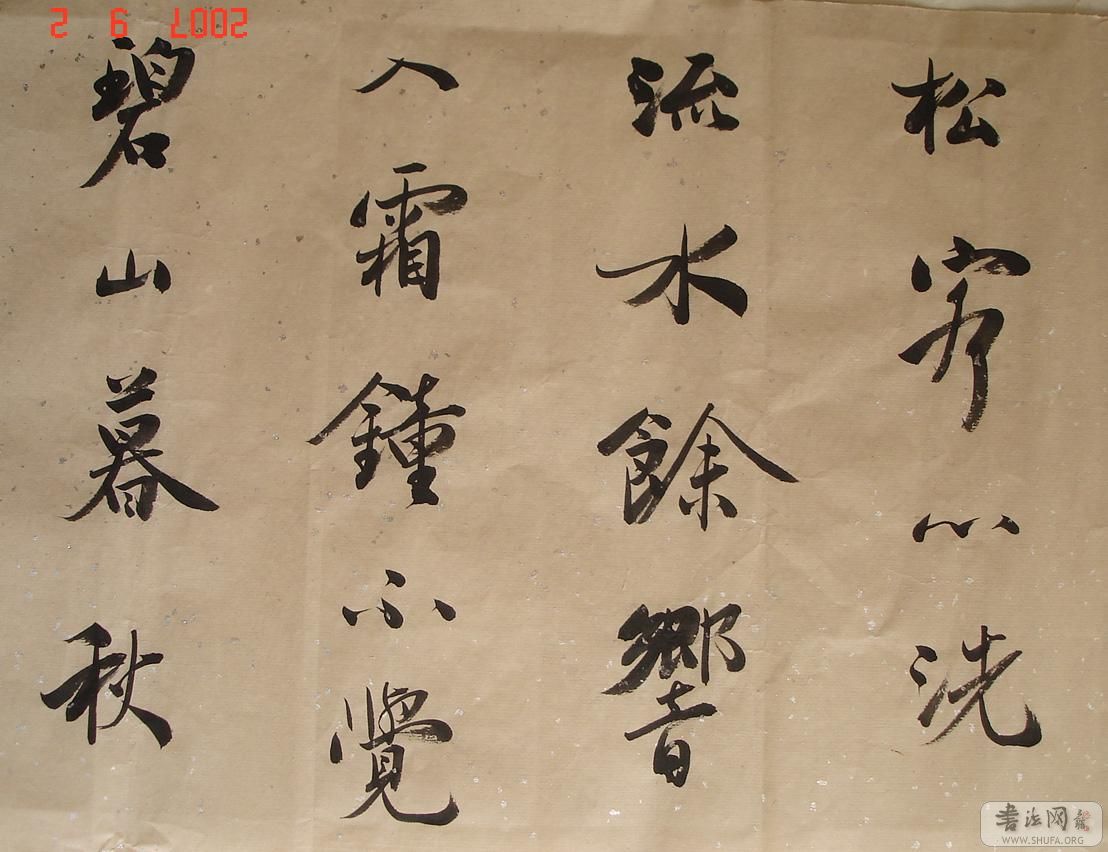 松客心洗
流水餘響
入霜鐘不覺
碧山暮秋
2007 9 2
書法网
WWW.SHUFA.ORG